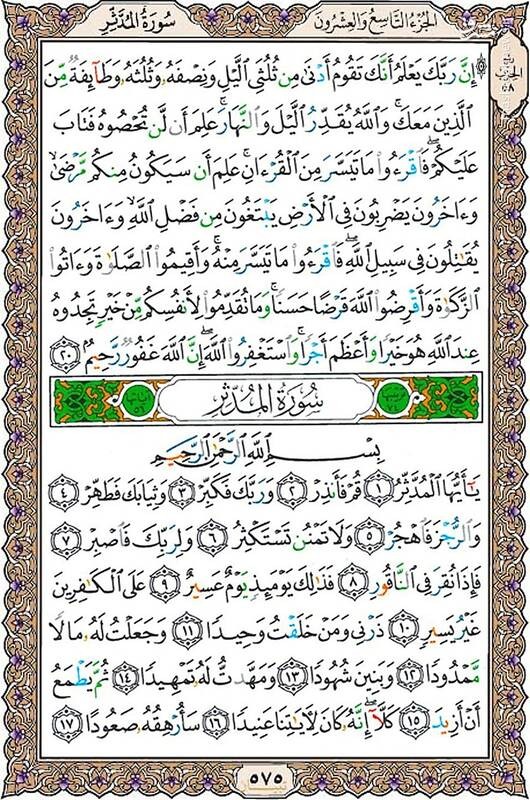 الجُزْءُ التَّاسِعُ وَالعِشْرُونَ
سُورَةُ المُدَّثِّرِ
إِنَّ رَبَّكَ يَعْلَمُ أَنَّكَ تَقُومُ أَدْنَىٰ مِن ثُلُثَىِ ٱلَّيْلِ وَنِصْفَهُۥ وَثُلُثَهُۥ وَطَآئِفَةٌ مِّنَ
ٱلَّذِينَ مَعَكَ ۚ وَٱللَّهُ يُقَدِّرُ ٱلَّيْلَ وَٱلنَّهَارَ ۚ عَلِمَ أَن لَّن تُحْصُوهُ فَتَابَ
عَلَيْكُمْ ۖ فَٱقْرَءُوا۟ مَا تَيَسَّرَ مِنَ ٱلْقُرْءَانِ ۚ عَلِمَ أَن سَيَكُونُ مِنكُم مَّرْضَىٰ ۙ
وَءَاخَرُونَ يَضْرِبُونَ فِى ٱلْأَرْضِ يَبْتَغُونَ مِن فَضْلِ ٱللَّهِ ۙ وَءَاخَرُونَ
يُقَٰتِلُونَ فِى سَبِيلِ ٱللَّهِ ۖ فَٱقْرَءُوا۟ مَا تَيَسَّرَ مِنْهُ ۚ وَأَقِيمُوا۟ ٱلصَّلَوٰةَ وَءَاتُوا۟
ٱلزَّكَوٰةَ وَأَقْرِضُوا۟ ٱللَّهَ قَرْضًا حَسَنًا ۚ وَمَا تُقَدِّمُوا۟ لِأَنفُسِكُم مِّنْ خَيْرٍ تَجِدُوهُ
عِندَ ٱللَّهِ هُوَ خَيْرًا وَأَعْظَمَ أَجْرًا ۚ وَٱسْتَغْفِرُوا۟ ٱللَّهَ ۖ إِنَّ ٱللَّهَ غَفُورٌ رَّحِيمٌۢ ٢٠
سُورَةُ المُدَّثِّرِ
بِسْمِ ٱللَّهِ ٱلرَّحْمَٰنِ ٱلرَّحِيمِ
يَٰٓأَيُّهَا ٱلْمُدَّثِّرُ ١ قُمْ فَأَنذِرْ ٢ وَرَبَّكَ فَكَبِّرْ ٣ وَثِيَابَكَ فَطَهِّرْ ٤
وَٱلرُّجْزَ فَٱهْجُرْ ٥ وَلَا تَمْنُن تَسْتَكْثِرُ ٦ وَلِرَبِّكَ فَٱصْبِرْ ٧
فَإِذَا نُقِرَ فِى ٱلنَّاقُورِ ٨ فَذَٰلِكَ يَوْمَئِذٍ يَوْمٌ عَسِيرٌ ٩ عَلَى ٱلْكَٰفِرِينَ
غَيْرُ يَسِيرٍ ١٠ ذَرْنِى وَمَنْ خَلَقْتُ وَحِيدًا ١١ وَجَعَلْتُ لَهُۥ مَالًا
مَّمْدُودًا ١٢ وَبَنِينَ شُهُودًا ١٣ وَمَهَّدتُّ لَهُۥ تَمْهِيدًا ١٤ ثُمَّ يَطْمَعُ
أَنْ أَزِيدَ ١٥ كَلَّآ ۖ إِنَّهُۥ كَانَ لِءَايَٰتِنَا عَنِيدًا ١٦ سَأُرْهِقُهُۥ صَعُودًا ١٧
٥٧٥